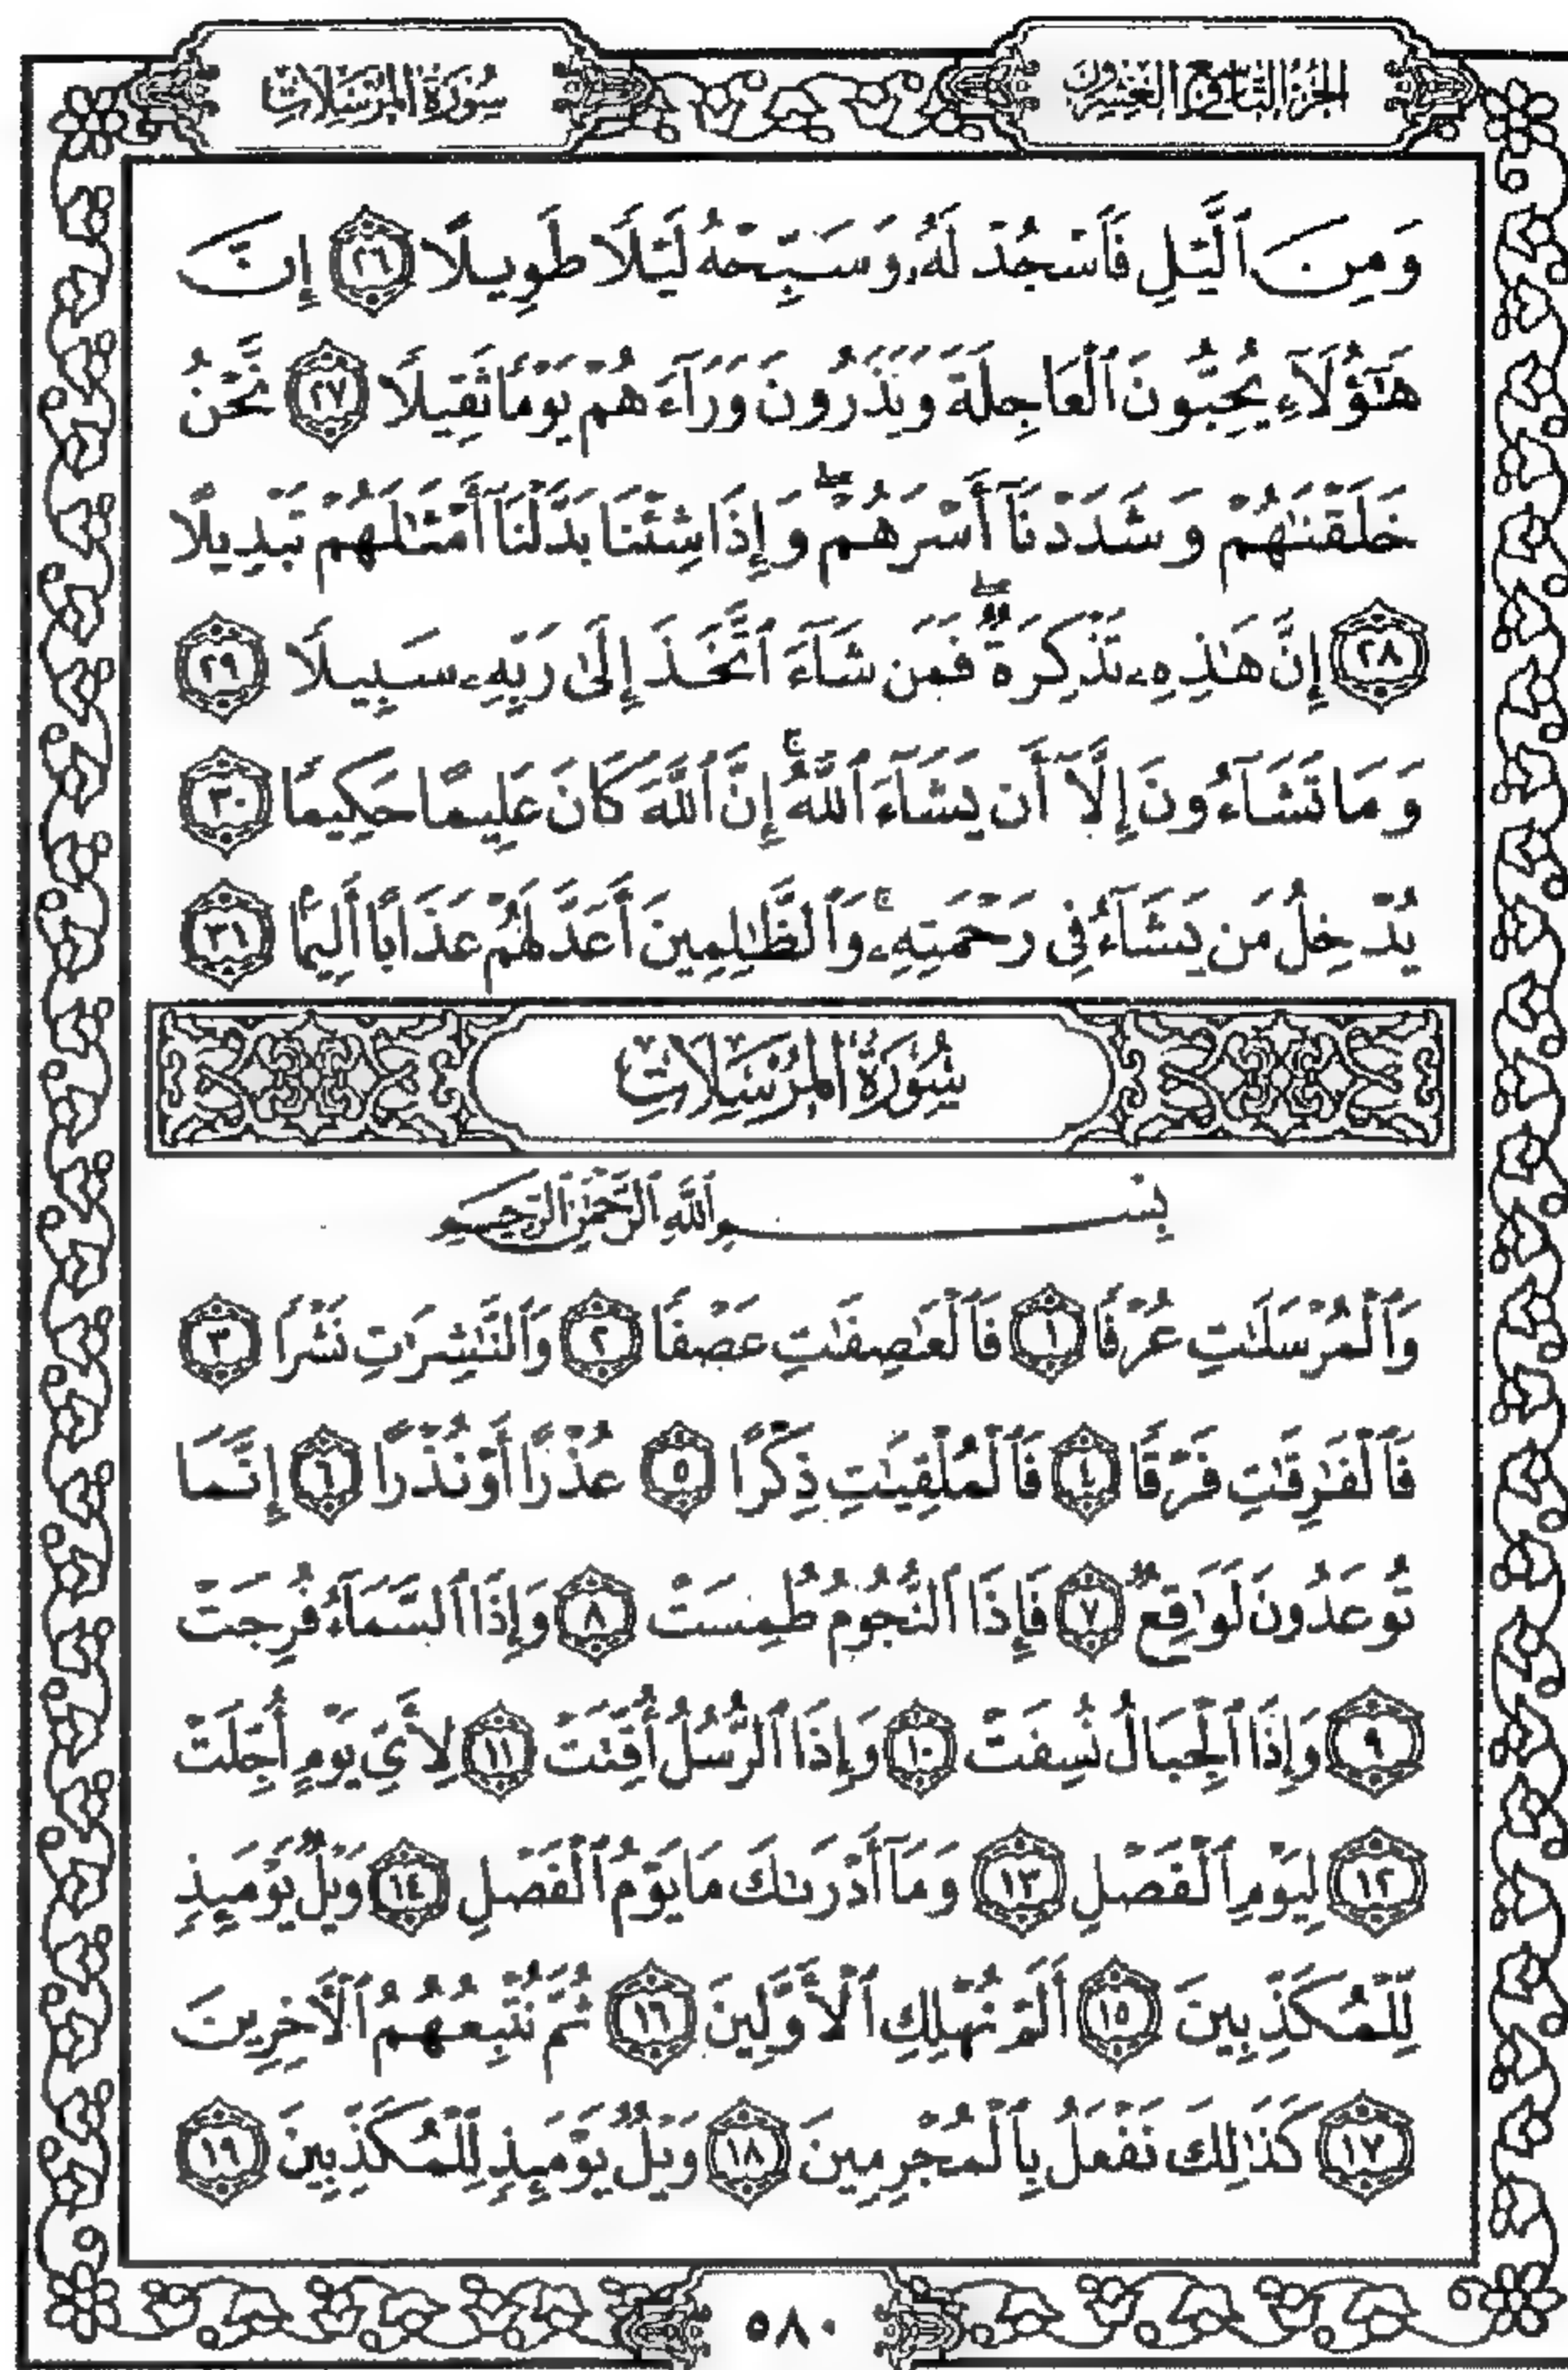 الجزء التاسع والعشرون
سُورَةُ المُرْسَلَاتِ
وَمِنَ ٱلَّيْلِ فَٱسْجُدْ لَهُۥ وَسَبِّحْهُ لَيْلًا طَوِيلًا ٢٦ إِنَّ
هَٰٓؤُلَآءِ يُحِبُّونَ ٱلْعَاجِلَةَ وَيَذَرُونَ وَرَآءَهُمْ يَوْمًا ثَقِيلًا ٢٧ نَّحْنُ
خَلَقْنَٰهُمْ وَشَدَدْنَآ أَسْرَهُمْ ۖ وَإِذَا شِئْنَا بَدَّلْنَآ أَمْثَٰلَهُمْ تَبْدِيلًا
٢٨ إِنَّ هَٰذِهِۦ تَذْكِرَةٌ ۖ فَمَن شَآءَ ٱتَّخَذَ إِلَىٰ رَبِّهِۦ سَبِيلًا ٢٩
وَمَا تَشَآءُونَ إِلَّآ أَن يَشَآءَ ٱللَّهُ ۚ إِنَّ ٱللَّهَ كَانَ عَلِيمًا حَكِيمًا ٣٠
يُدْخِلُ مَن يَشَآءُ فِى رَحْمَتِهِۦ ۚ وَٱلظَّٰلِمِينَ أَعَدَّ لَهُمْ عَذَابًا أَلِيمًۢا ٣١
سُورَةُ المُرْسَلَاتِ
بِسْمِ ٱللَّهِ ٱلرَّحْمَٰنِ ٱلرَّحِيمِ
وَٱلْمُرْسَلَٰتِ عُرْفًا ١ فَٱلْعَٰصِفَٰتِ عَصْفًا ٢ وَٱلنَّٰشِرَٰتِ نَشْرًا ٣
فَٱلْفَٰرِقَٰتِ فَرْقًا ٤ فَٱلْمُلْقِيَٰتِ ذِكْرًا ٥ عُذْرًا أَوْ نُذْرًا ٦ إِنَّمَا
تُوعَدُونَ لَوَٰقِعٌ ٧ فَإِذَا ٱلنُّجُومُ طُمِسَتْ ٨ وَإِذَا ٱلسَّمَآءُ فُرِجَتْ
٩ وَإِذَا ٱلْجِبَالُ نُسِفَتْ ١٠ وَإِذَا ٱلرُّسُلُ أُقِّتَتْ ١١ لِأَىِّ يَوْمٍ أُجِّلَتْ
١٢ لِيَوْمِ ٱلْفَصْلِ ١٣ وَمَآ أَدْرَىٰكَ مَا يَوْمُ ٱلْفَصْلِ ١٤ وَيْلٌ يَوْمَئِذٍ
لِّلْمُكَذِّبِينَ ١٥ أَلَمْ نُهْلِكِ ٱلْأَوَّلِينَ ١٦ ثُمَّ نُتْبِعُهُمُ ٱلْءَاخِرِينَ
١٧ كَذَٰلِكَ نَفْعَلُ بِٱلْمُجْرِمِينَ ١٨ وَيْلٌ يَوْمَئِذٍ لِّلْمُكَذِّبِينَ ١٩
٥٨٠